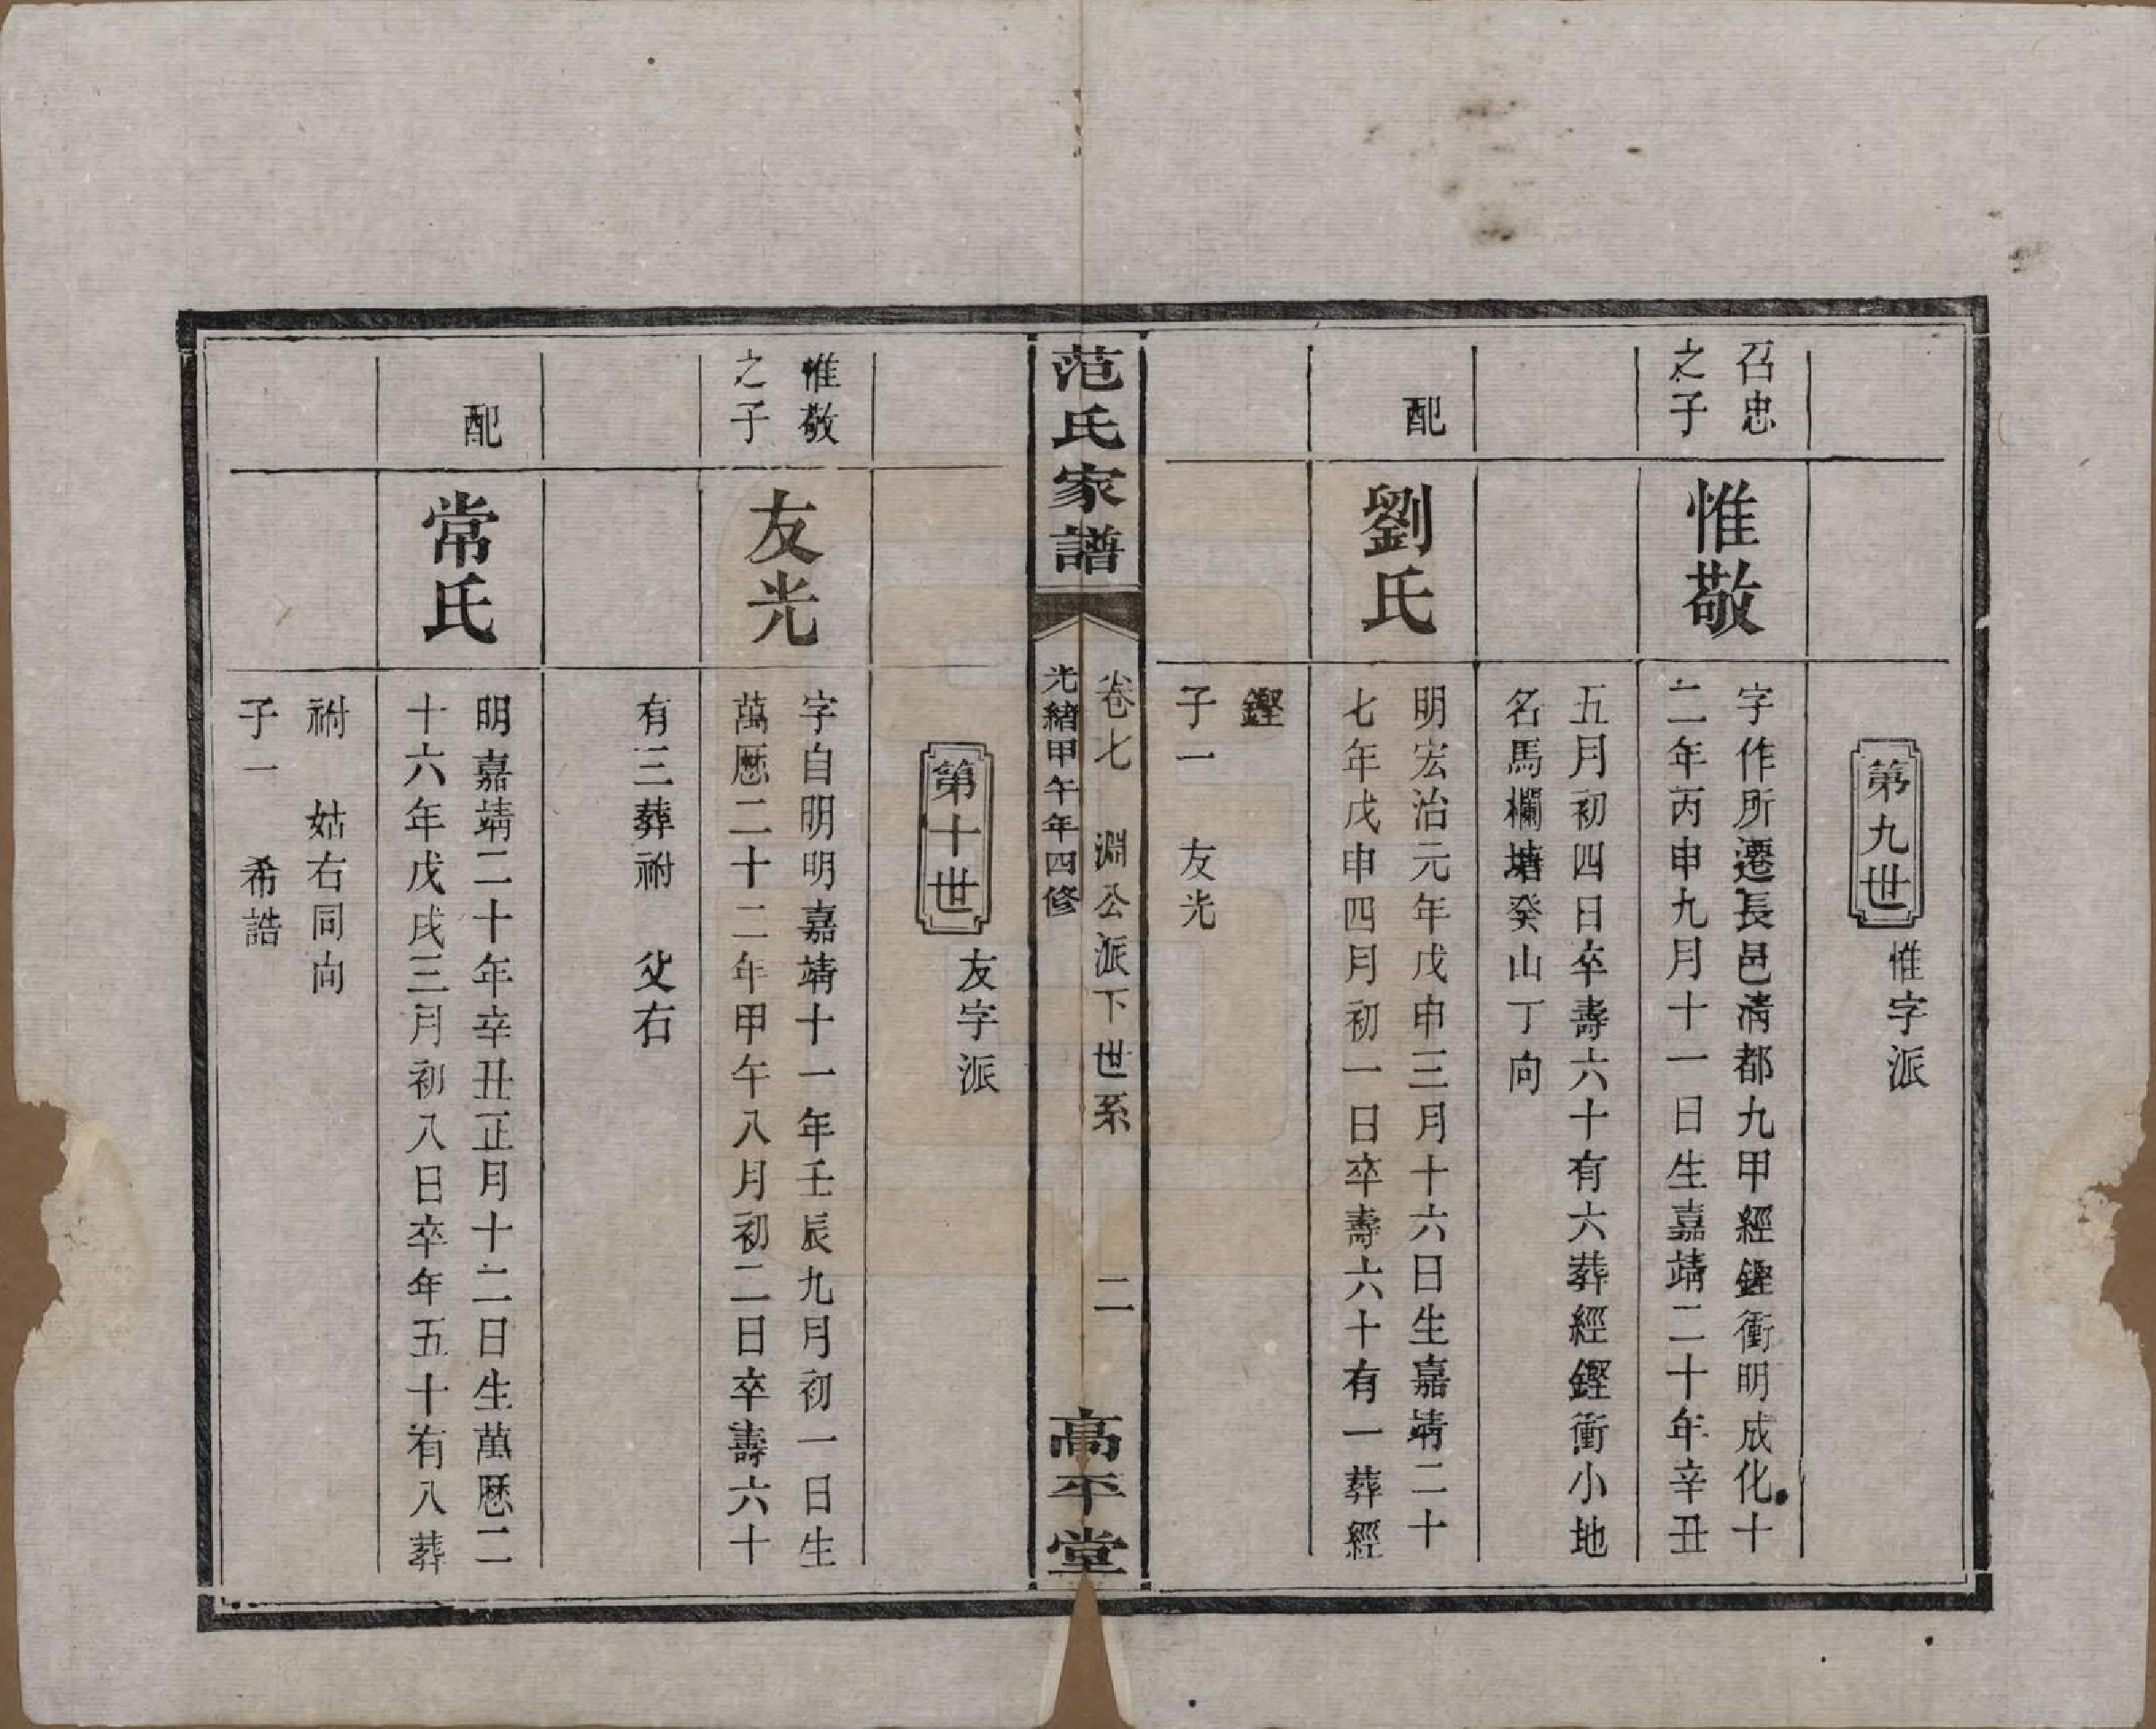 第九世
惟字派
召忠
之子
惟敬
字作所遷長邑清都九甲經鏗衝明成化十
二年丙申九月十一日生嘉靖二十年辛丑
五月初四日卒壽六十有六葬經鏗衝小地
名馬欄塘癸山丁向
配
劉氏
明宏治元年戊申三月十六日生嘉靖二十
七年戊申四月初一日卒壽六十有一葬經
鏗
子一　友光
范氏家譜
卷七　淵公派下世系　二
光緒甲午年四修
高平堂
第十世
友字派
惟敬
之子
友光
字自明明嘉靖十一年壬辰九月初一日生
萬厯二十二年甲午八月初二日卒壽六十
有三葬祔　父右
配
常氏
明嘉靖二十年辛丑正月十二日生萬厯二
十六年戊戌三月初八日卒年五十有八葬
祔　姑右同向
子一　希誥